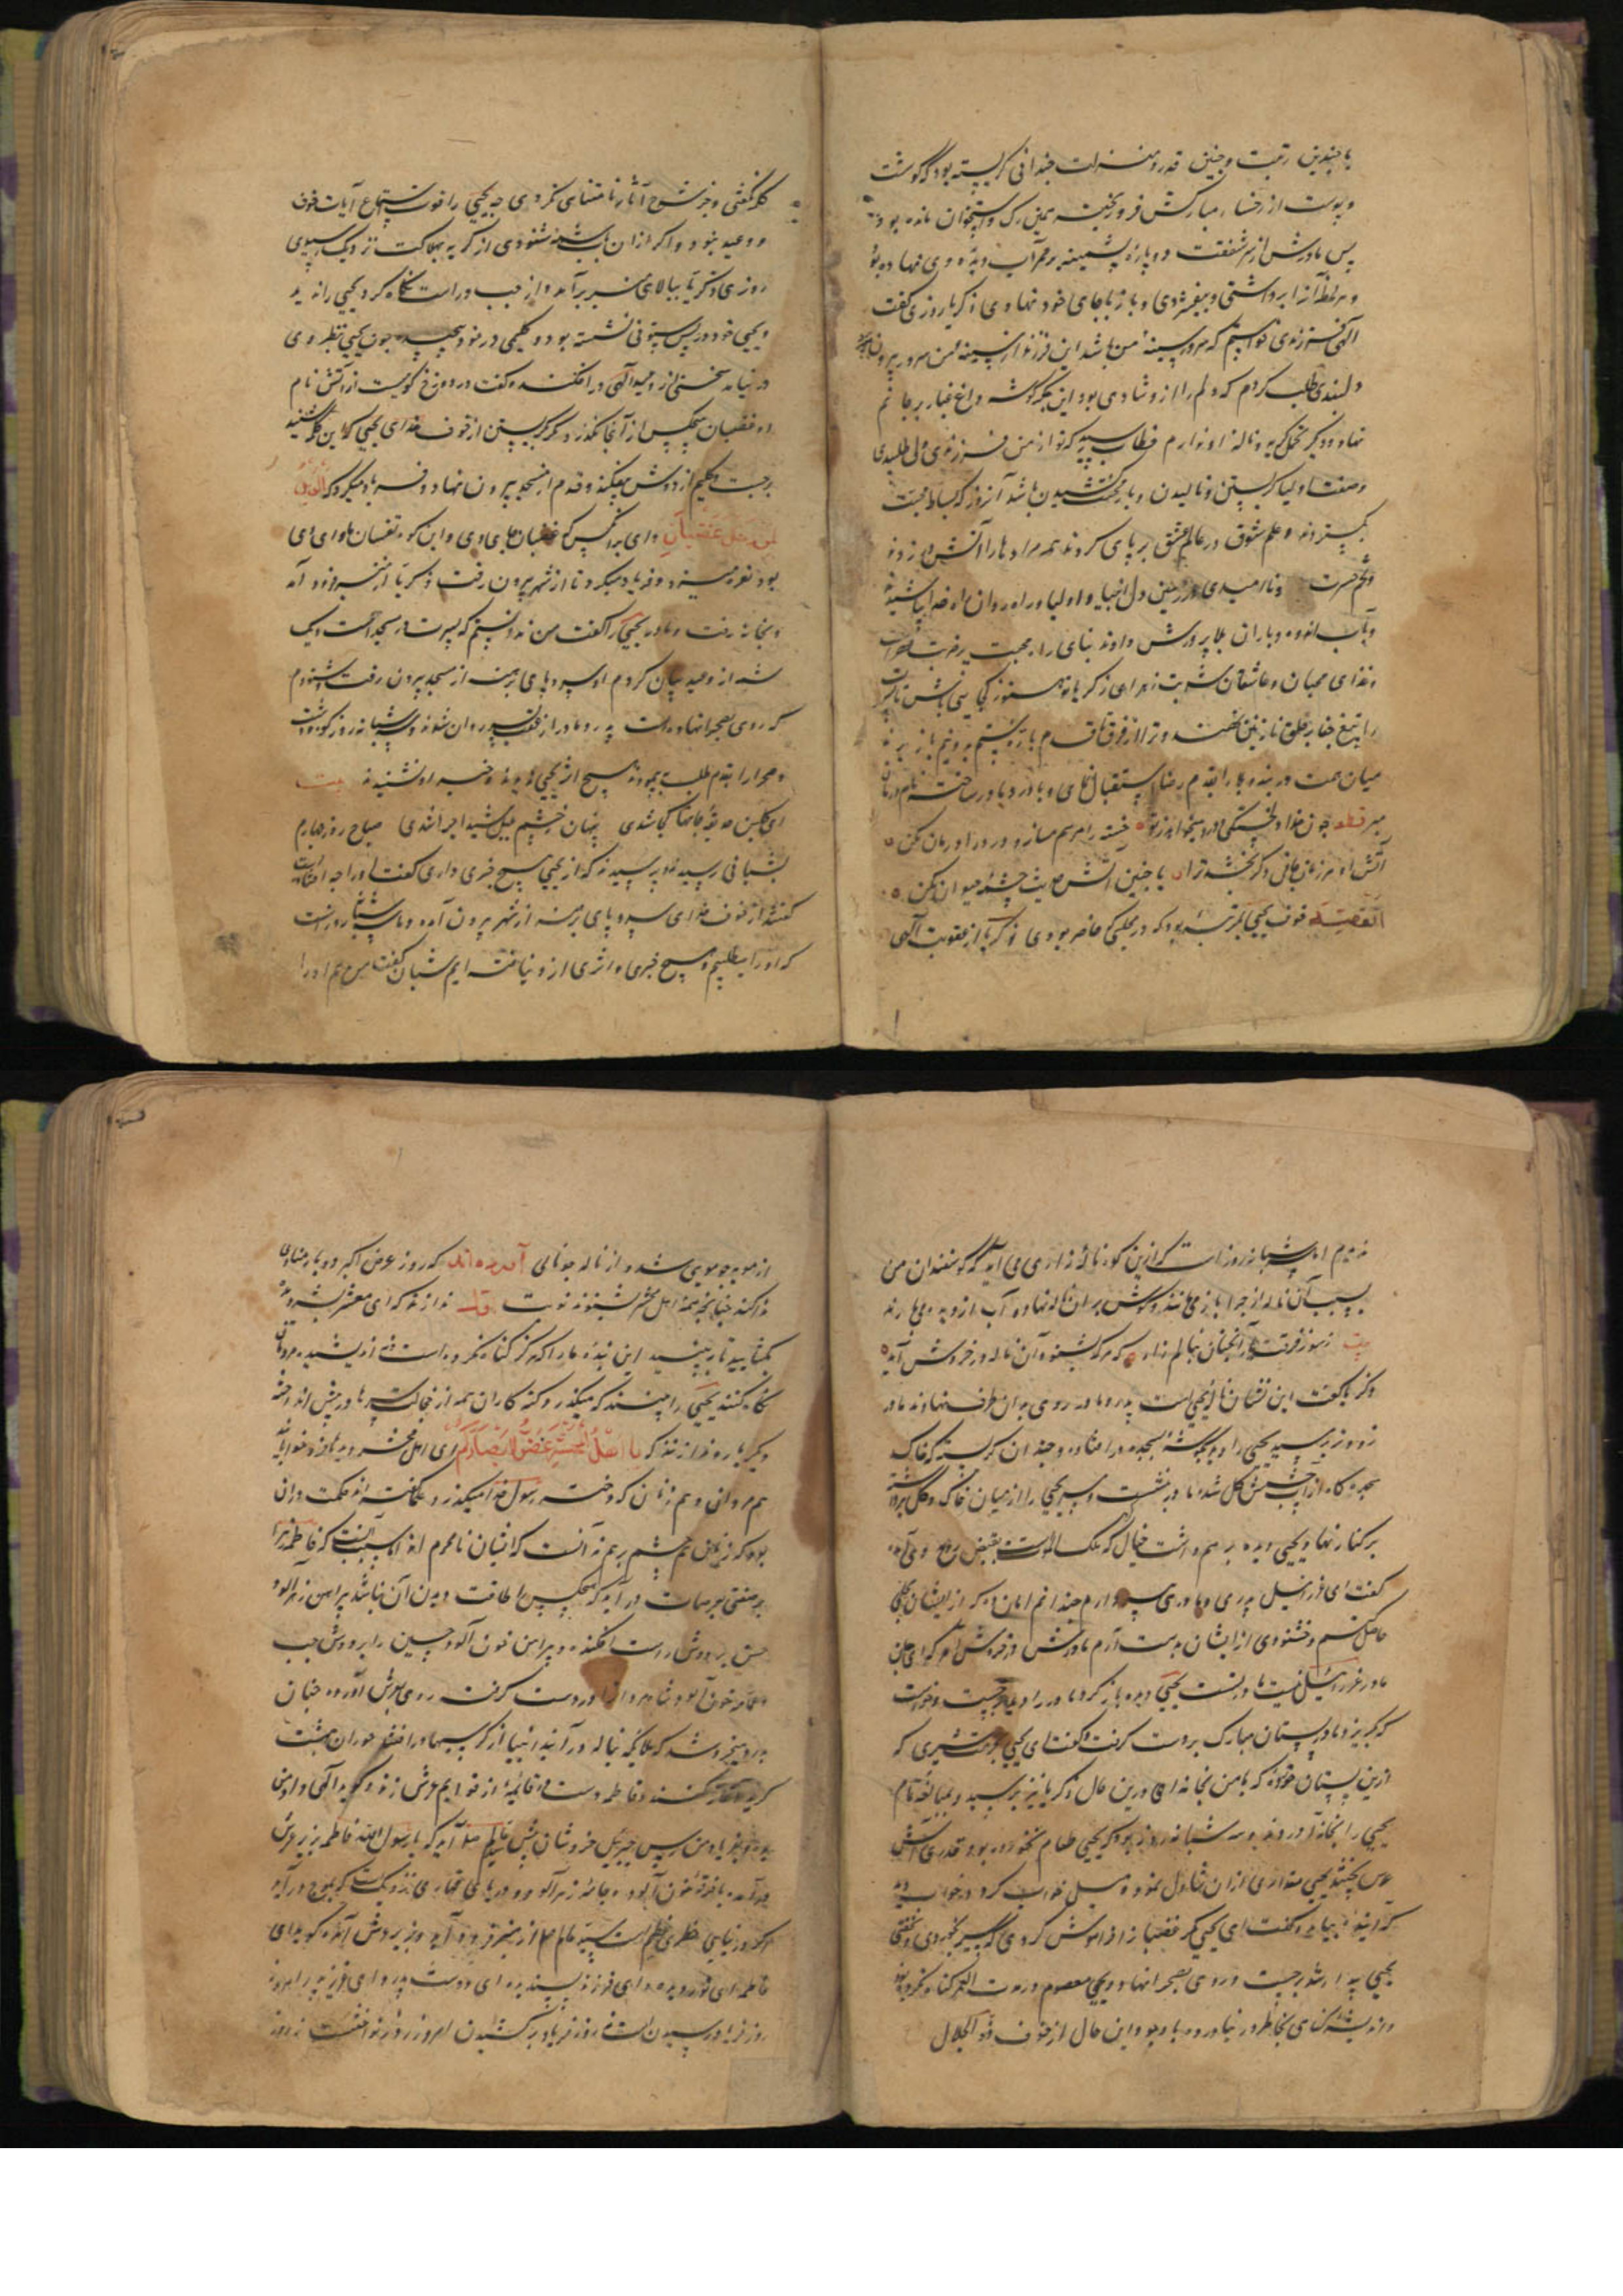 با چندین رتبت و چنین قدر و منزلت چندانی گریسته بود که گوشت
و پوست از رخسار مبارکش فرو ریخته همین رک و استخوان مانده بود
پس مادرش از سر شفقت دو پاره پشمینه بر ممر آب دیده وی نهاده بود
و هر لحظه آنرا برداشتی و بیفشردی و باز بجای خود نهادی زکریا روزی گفت
الهی فرزندی خواستم که سرور سینه من باشد این فرزند از سینه من سرور بیرون
دلبندی طلب کردم که دلم را ازو شادی بود این جگر گوشه داغ غبار بر جانم
نهاد و دیگر تحمل گریه و ناله او ندارم خطاب رسید که تو از من فرزندی ولی طلبیدی
و صفت اولیا گریستن و نالیدن و بار محنت کشیدن باشد آنروز که بساط محبت
بگستردند و علم شوق در عالم عشق بر پای کردند همه مرادها را آتش در زدند
و تخم حسرت و ناامیدی در زمین دل انبیا و اولیا و راه روان راه خدا پاشیدند
و بآب اندوه و باران بلا پرورش دادند بنای راه محبت بر
و غذای محبان و عاشقان شربت زهر ای زکریا تو هنوز کجایی باش تا
را بتیغ جفا بر حلق نازنین نهند و ترا از فرق تا قدم باره ستم بدو نیم باز برند
میان همت در بند و بلا را بقدم رضا استقبال نمای و با درد
قطعه چون خدا دلخستگی و درد میخواهد ز تو خسته را مرهم مساز و درد را درمان مکن
آتش او هر زمان جانی دگر بخشد ترا با چنین آتش حدیث چشمه حیوان مکن
القصه خوف یحیی بمرتبه بود که در مجلسی که حاضر بودی زکریا از عقوبت الهی
کلمه نگفتی و جز شرح آثار نامتناهی نکردی چه یحیی را قوت استماع آیات خوف
و وعید نبود و اگر از ان باب سخن شنودی از گریه بهلاکت نزدیک رسیدی
روزی زکریا ببالای منبر بر آمد و از چپ و راست نگاه کرد یحیی را ندید
و یحیی خود در پس ستونی نشسته بود و گلیمی در خود پیچیده چون یحیی بنظر وی
در نیامد سخنی از وعید الهی در افکنده گفت در دوزخ کوهیست از آتش نام
او غضبان هیچکس از آنجا نگذرد مگر بگریستن از خوف خدای یحیی که این کلمه شنید
برجست و گلیم از دوش بیفکند و قدم از مسجد بیرون نهاد و فریاد میکرد که الویل
لمن دخل غضبان وای برانکس که غضبان جای وی و این کوه غضبان ماوای وی
بود نعره میزد و فریاد میکرد تا از شهر بیرون رفت زکریا از منبر فرود آمد
و بخانه رفت و مادر یحیی را گفت من ندانستم که پسرت در مسجد است و یک
شمه از وعید بیان کردم او سر و پای برهنه از مسجد بیرون رفت و شنودم
که روی بصحرا نهاده است پدر و مادر از عقب پسر روان شدند و سه شبانه روز کوه و دشت
و صحرا را بقدم طلب بپیمودند هیچ اثر یحیی ندیدند و خبر او نشنیدند بیت
ای گلبن حدیقه جانها کجا شدی پنهان ز چشم بلبل شیدا چرا شدی صباح روز چهارم
بشبانی رسیدند و پرسیدند که از یحیی هیچ خبری داری گفت او را چه افتاده است
گفتند از خوف خدای سر و پای برهنه از شهر بیرون آمده و ما سه شبانه روز است
که او را میطلبیم و هیچ خبری و اثری ازو نیافته ایم شبان گفت من هم او را
ندیدم اما سه شبانه روز است که ازین کوه ناله و زاری می آید که گوسفندان من
بسبب آن ناله از چرا باز می مانند و گوش بر ان ناله نهاده آب از دیده می بارند
بیت ز سوز فرقت یار آنچنان بنالم زار که هر که بشنود آن ناله در خروش آید
زکریا گفت این نشان ناله یحیی است پدر و مادر روی بدان طرف نهادند مادر
زودتر برسید یحیی را دید بگوشه بسجده در افتاده و چندان گریسته که خاک
سجده گاه از آب چشمش گل شده مادر بنشست و سر یحیی را از میان خاک و گل برداشته
بر کنار نهاد یحیی دیده بر هم داشت خیال کرد که ملک الموت است بقبض روح وی آمده
گفت ای عزرائیل پدری و مادری پیر دارم چندانم امان ده که از ایشان بحلی
حاصل کنم و خشنودی از ایشان بدست آرم مادرش در خروش آمد که ای جان
مادر عزرائیل نیست مادر تست یحیی دیده باز کرد مادر را دید برجست و خواست
که بگریزد مادر پستان مبارک بر دست گرفت و گفت ای یحیی بحرمت شیری که
ازین پستان خورده که با من بخانه آی درین حال زکریا نیز برسید و بمبالغه تمام
یحیی را بخانه آوردند و سه شبانه روز بود که یحیی طعام نخورده بود قدری آش
عدس پختند یحیی مقداری از ان تناول نمود و میل خواب کرد در خواب دید
که آینده بیامد و گفت ای یحیی مگر غضبان را فراموش کردی که سیر بخوردی و بخفتی
یحیی بیدار شد برجست و روی بصحرا نهاد و یحیی معصوم در مدت العمر گناه نکرده بود
و اندیشه گناهی بخاطر در نیاورده با وجود این حال از خوف ذو الجلال
از مویه چو مویی شد و از ناله چو نالی آورده اند که روز عرض اکبر دو بار منادی
ندا کند چنانچه همه اهل محشر بشنوند نوبت اول ندا زند که ای معشر بشر دیده
بگشایید تا ببینید این بنده ما را که هرگز گناه نکرده است و نه اندیشیده مردمان
نگاه کنند یحیی را ببینند که میگذرد گنه کاران همه از خجالت سرها در پیش اندازند
و دیگر بار ندا زند که یا اهل المحشر غضوا ابصارکم ای اهل محشر دیده ها فرو خوابانید
هم مردان و هم زنان که دختر رسول خدا میگذرد علما گفته اند حکمت دران
بود که زنان هم چشم بر هم نه آنست که ایشان نامحرم اند اما سبب آنست که فاطمه زهرا
بر صفتی بعرصات در آید که هیچکس را طاقت دیدن آن نباشد پیراهن زهر آلود
حسن بر دوش راست افکنده و پیراهن خون آلود حسین را بر دوش چپ
و عمامه خون آلود شاه مردان را در دست گرفته روی بعرش آورده چنان
بدرد بخروشد که ملائکه بناله در آیند انبیا از کرسیها در افتند حوران بهشت
گریه آغاز کنند و فاطمه دست در قائمه از قوائم عرش زند و گوید الهی داد من
بده و بفریاد من رس جبرئیل خروشان پیش خاتم صلعم آید که یا رسول الله فاطمه بزیر عرش
در آمده با خرقه خون آلوده و جامه زهر آلود و دریای قهاری نزدیکست که بموج در آید
اگر در نیابی خطری عظیم است سید عالم صلعم از منبر فرود آید و بزیر عرش آمده گوید ای
فاطمه ای نور دیده و ای فرزند پسندیده ای دوست پدر و ای عزیز پدر امروز
روز فریاد رسیدن است نه روز فریاد بر کشیدن امروز روز شفاعتست نه روز